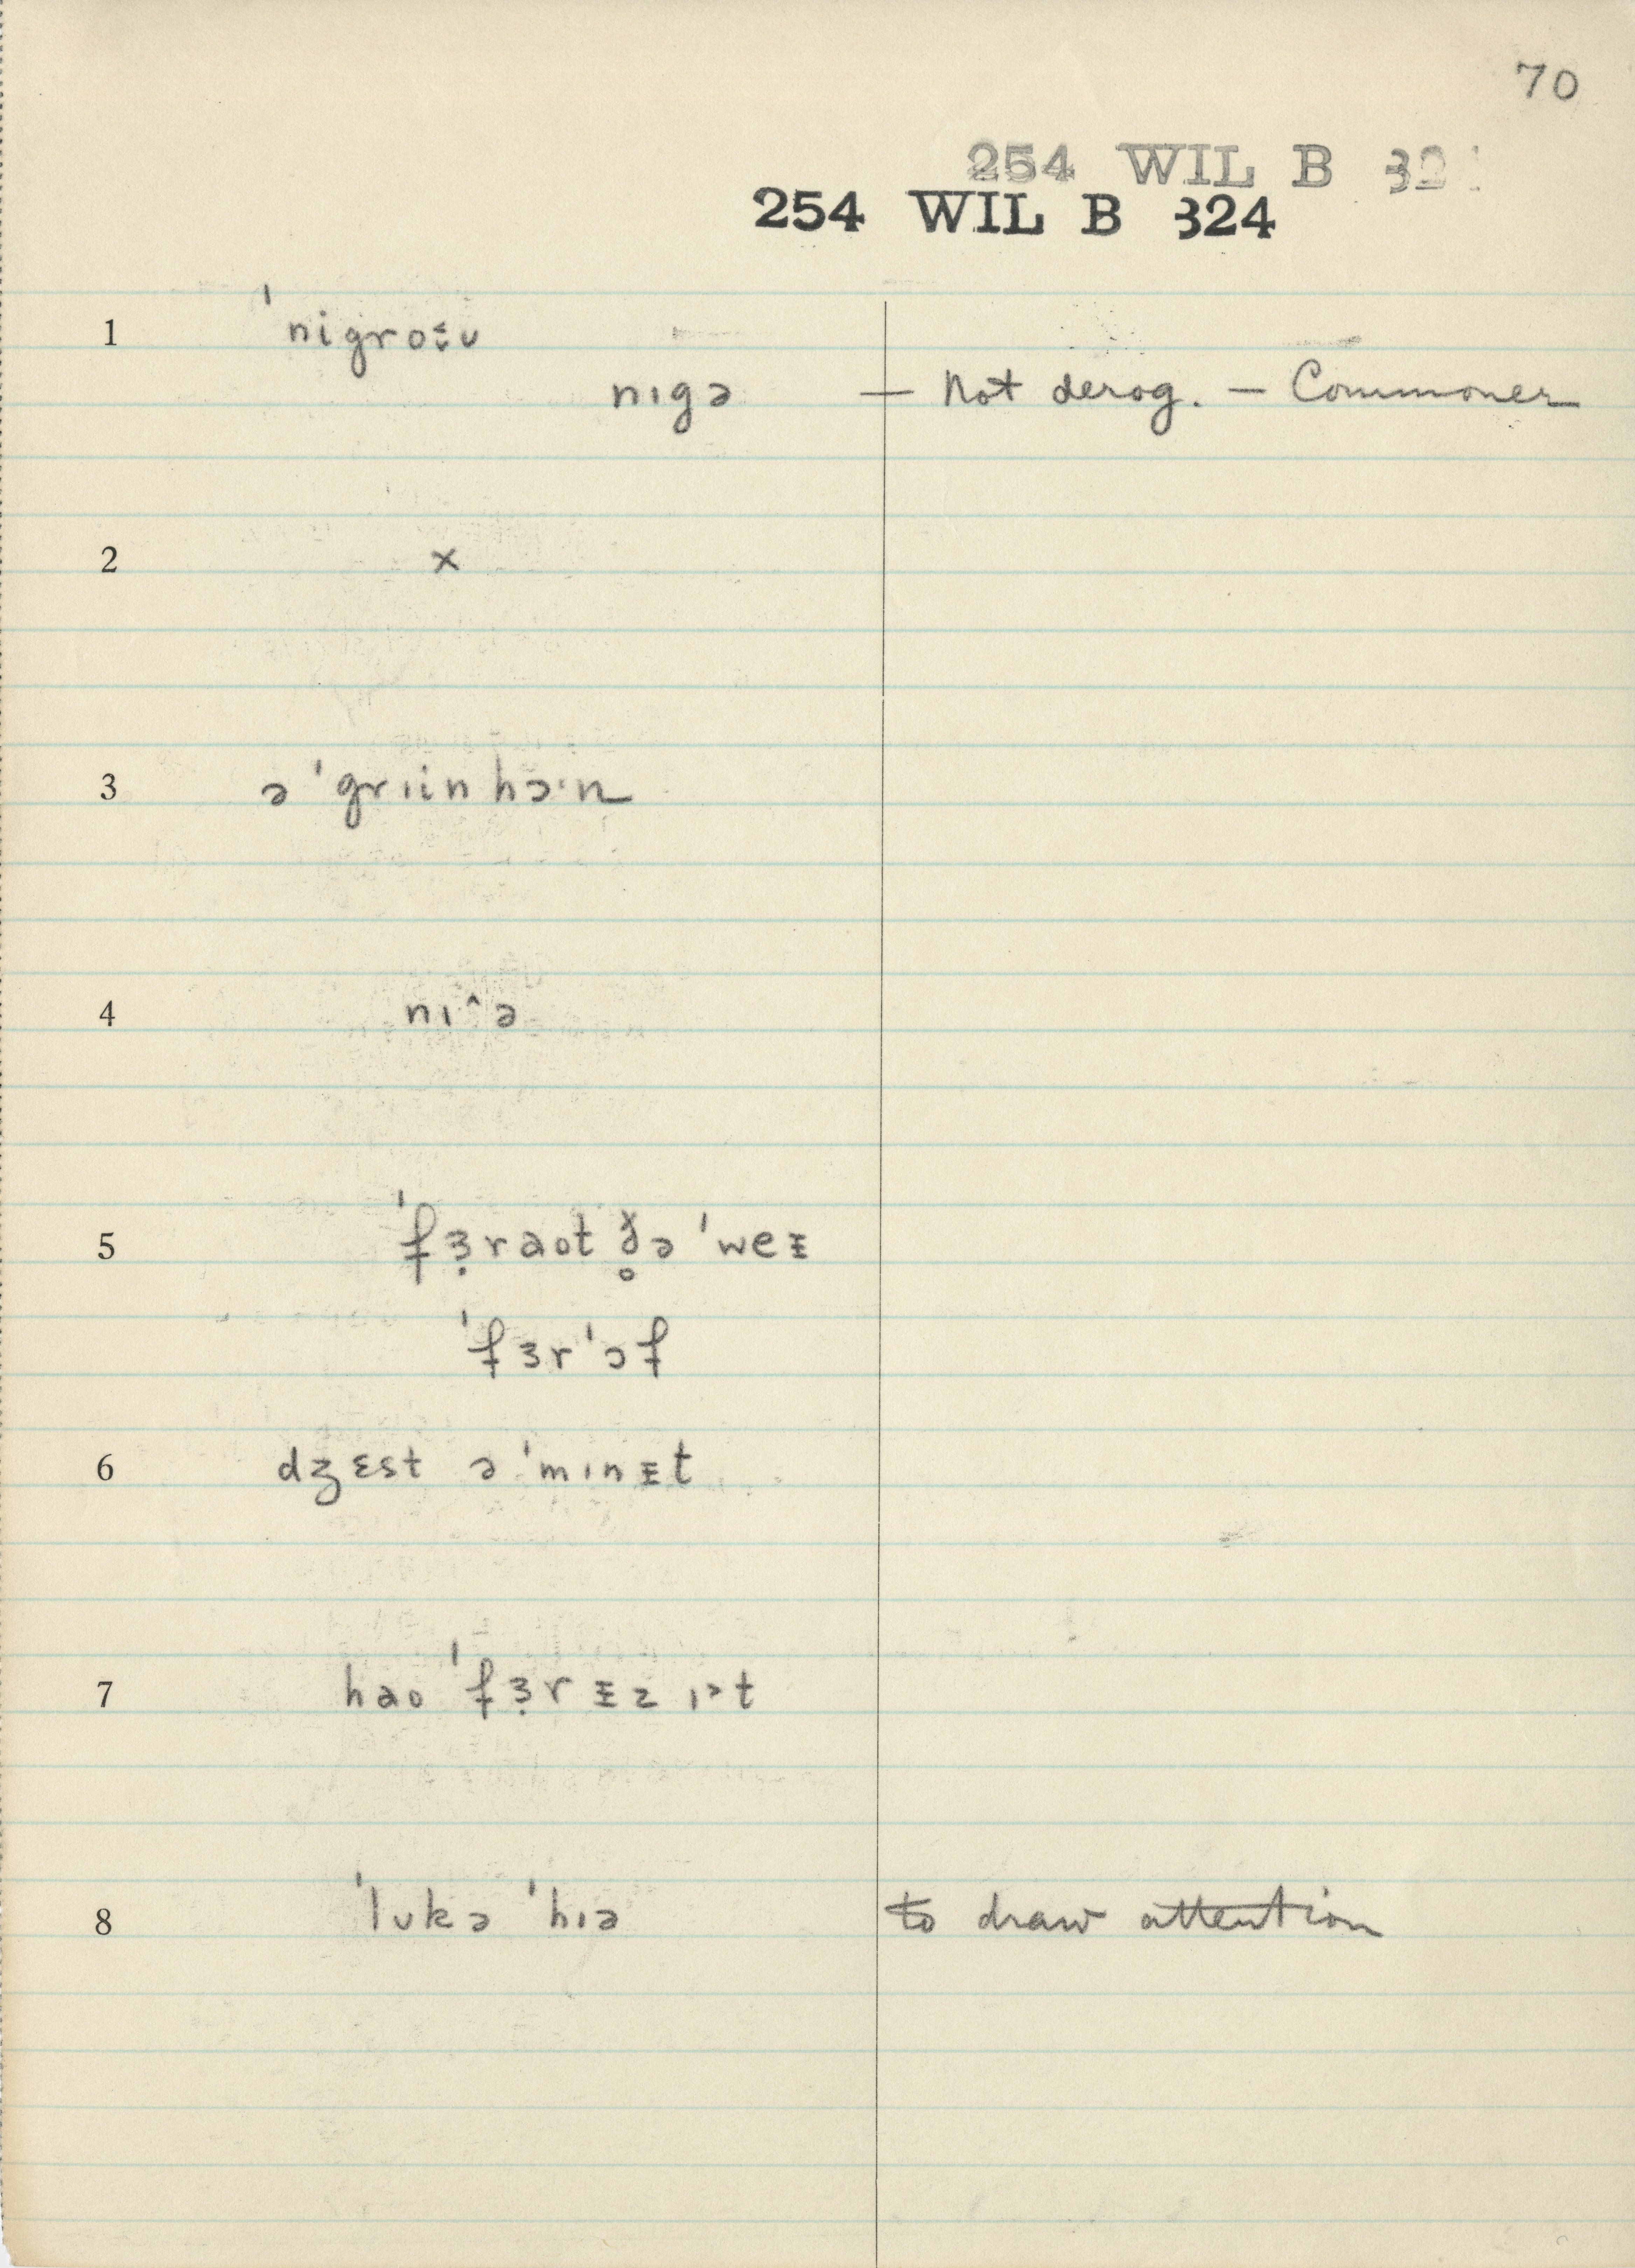 70
254 WIL B 32
254 WIL B 324
1 ˈnigroˑ̜ʊ
nɪgə — Not derog. — Commoner
2 x
3 ə ˈgrɪin hɔˑn
4 nɪ^ə
5 ˈfɜ̣raot ð̥ə ˈweᵻ
ˈfɜrˈɔf
6 dʒɛst ə ˈmɪnᵻt
7 hao ˈfɜ̣r ᵻz ɪ˃t
8 ˈlʊkə ˈhɪə to draw attention